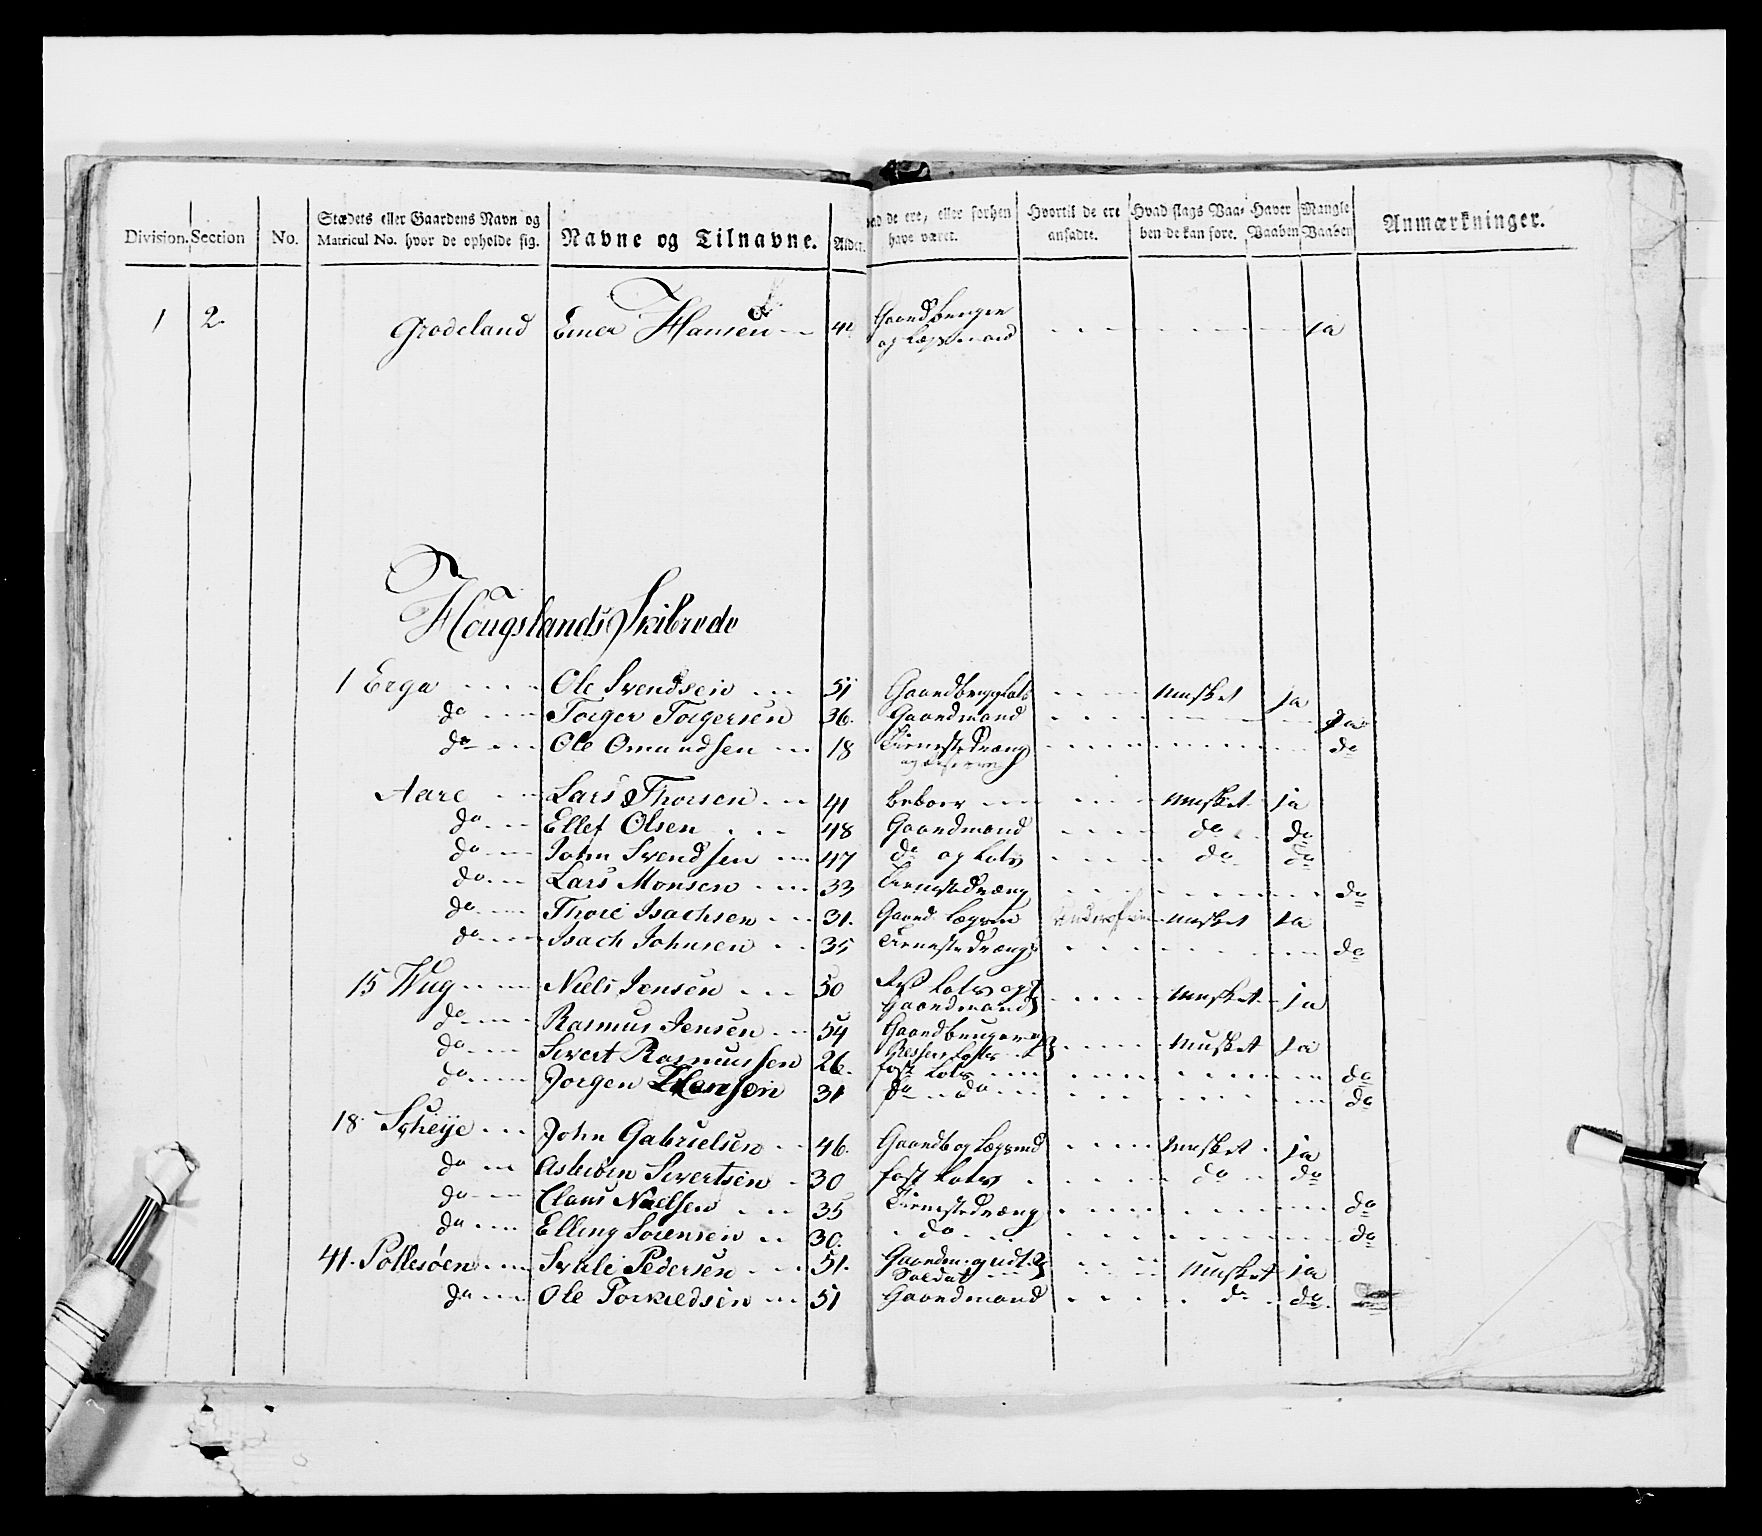 Division. Section No. Stædets eller Gaardens Navn og Matricul No. hvor de opholde sig. Navne og Tilnavne. Alder. de ere, eller forhen have været. Hvortil de ere ansadte. Hvad slags Vaaben de kan føre. Haver Vaaben Mangle Vaaben Anmærkninger.
1 2 Grodeland Hansen Gaardbruger og Lægsmand ja
Hougslands Skibrede
1 Erga Ole Svendsen 51 Musket ja
do Torger Torgersen 36. Gaardmand Ja
do Ole Omundsen 18 Tienestedræng do
Aare Lars Thorsen 41 beboer Musket ja
do Ellef Olsen 48 Gaardmand do do
do John Svendsen 47 do og Lods do do
do Lars Monsen 33 Tienestedræng do
do Thore Isachsen 31. Gaard Musket ja
do Isach Johnsen 35 Tienestedræng do
15 Wug Niels Jensen 50 Lods og Gaardmand Musket ja
do Rasmus Jensen 54 Gaardbruger Musket ja
do Sivert Rasmussen 26. fast Lods do
do Jørgen Hansen 31 do do do
18 Scheije John Gabrielsen 46. Gaardb og Lægsmd Musket ja
do Asbiørn Sivertsen 30 fast Lods do do
do Claus Nielsen 35 Tienestedræng do
do Elling Sørensen 30. do do
41. Pollesøen Svale Pedersen 51. Gaardm: og udt: Soldat Musket ja
do Ole Torkildsen 51 Gaardmand do do